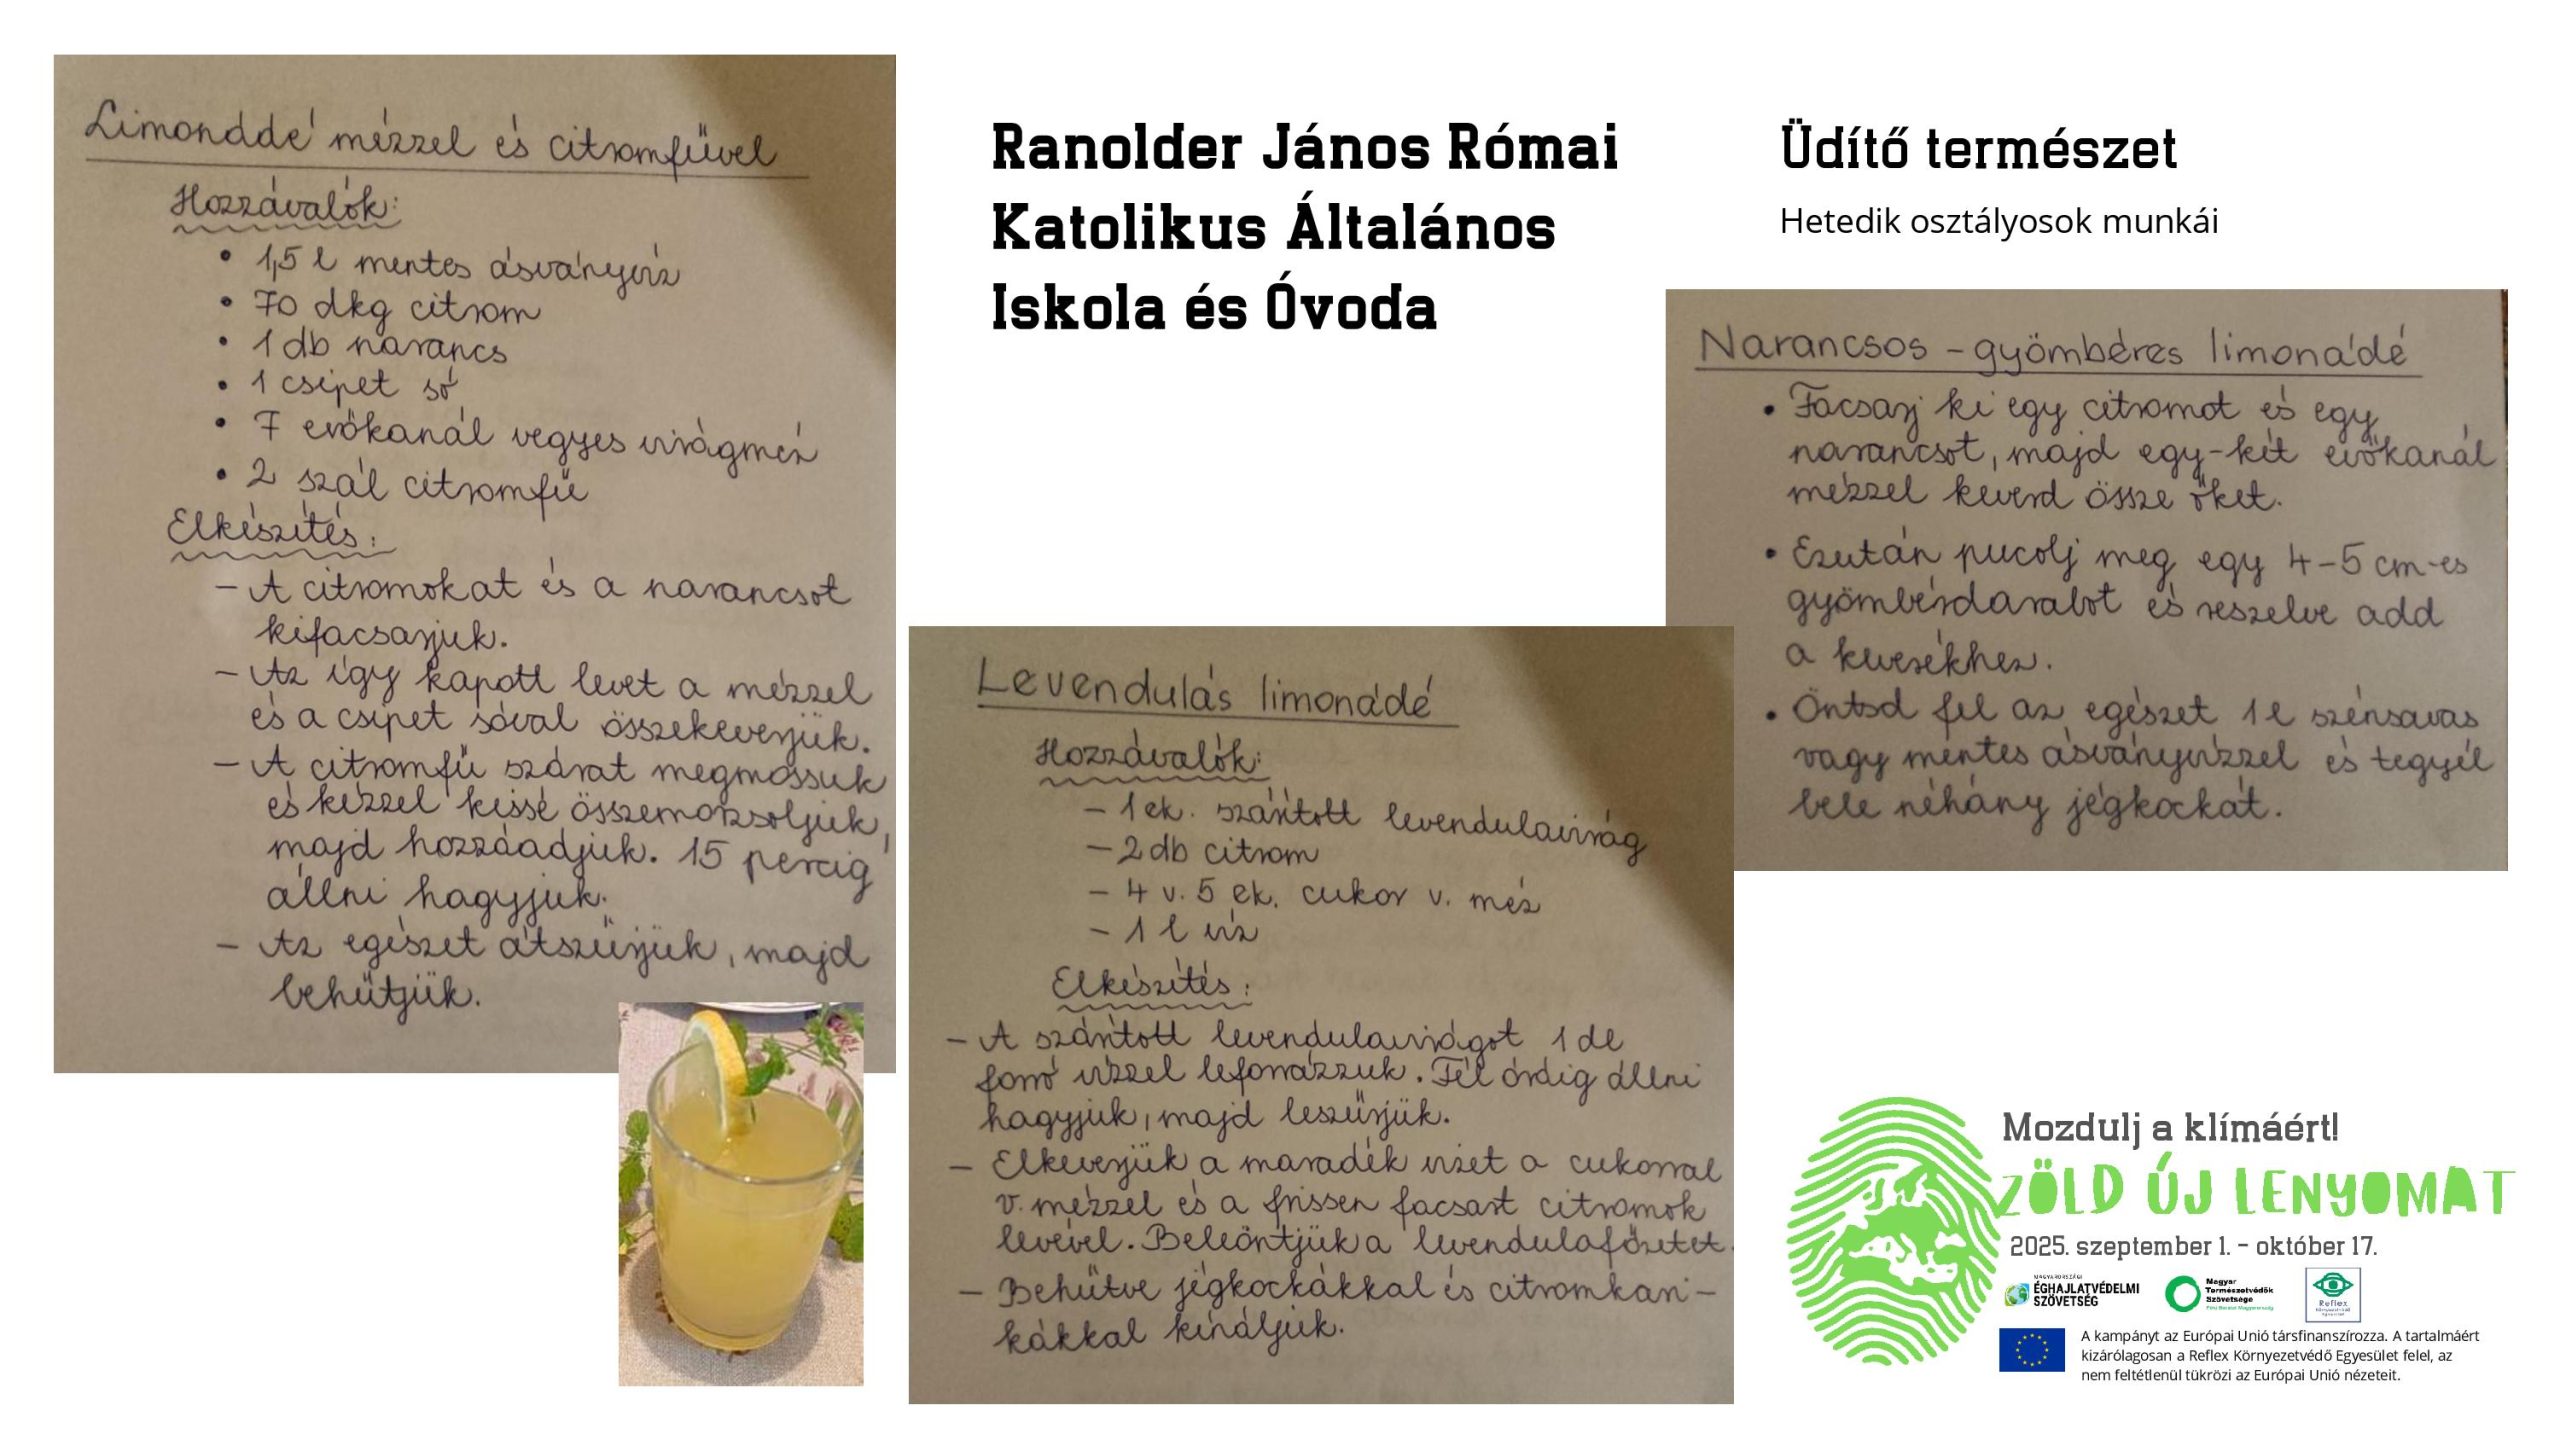 Limonádé mézzel és citromfűvel
Hozzávalók:
• 1,5 l mentes ásványvíz
• 70 dkg citrom
• 1 db narancs
• 1 csipet só
• 7 evőkanál vegyes virágméz
• 2 szál citromfű
Elkészítés:
- A citromokat és a narancsot
kifacsarjuk.
- Az így kapott levet a mézzel
és a csipet sóval összekeverjük.
- A citromfű szárat megmossuk
és kézzel kissé összemorzsoljuk,
majd hozzáadjuk. 15 percig
állni hagyjuk.
- Az egészet átszűrjük, majd
behűtjük.
Ranolder János Római
Katolikus Általános
Iskola és Óvoda
Levendulás limonádé
Hozzávalók:
- 1 ek. szárított levendulavirág
- 2 db citrom
- 4 v. 5 ek. cukor v. méz
- 1 l víz
Elkészítés:
- A szárított levendulavirágot 1 dl
forró vízzel leforrázzuk. Fél óráig állni
hagyjuk, majd leszűrjük.
- Elkeverjük a maradék vizet a cukorral
v. mézzel és a frissen facsart citromok
levével. Beleöntjük a levendulafőzetet.
- Behűtve jégkockákkal és citromkari-
kákkal kínáljuk.
Üdítő természet
Hetedik osztályosok munkái
Narancsos - gyömbéres limonádé
• Facsarj ki egy citromot és egy
narancsot, majd egy-két evőkanál
mézzel keverd össze őket.
• Ezután pucolj meg egy 4-5 cm-es
gyömbérdarabot és reszelve add
a keverékhez.
• Öntsd fel az egészet 1 l szénsavas
vagy mentes ásványvízzel és tegyél
bele néhány jégkockát.
Mozdulj a klímáért!
ZÖLD ÚJ LENYOMAT
2025. szeptember 1. - október 17.
MAGYARORSZÁGI
ÉGHAJLATVÉDELMI
SZÖVETSÉG
Magyar
Természetvédők
Szövetsége
Reflex
A kampányt az Európai Unió társfinanszírozza. A tartalmáért
kizárólagosan a Reflex Környezetvédő Egyesület felel, az
nem feltétlenül tükrözi az Európai Unió nézeteit.